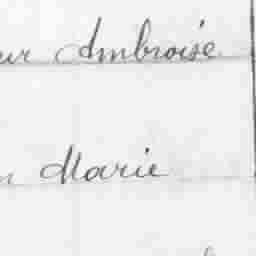 ur Ambroise
n Marie